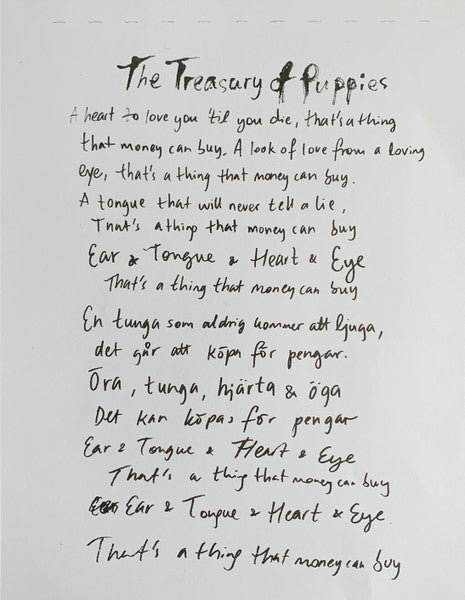 The Treasury of Puppies
A heart to love you 'til you die, that's a thing
that money can buy. A look of love from a loving
eye, that's a thing that money can buy.
A tongue that will never tell a lie,
That's a thing that money can buy
Ear & Tongue & Heart & Eye
That's a thing that money can buy
En tunga som aldrig kommer att ljuga,
det går att köpa för pengar.
Öra, tunga, hjärta & öga
Det kan köpas för pengar
Ear & Tongue & Heart & Eye
That's a thing that money can buy
Ear & Tongue & Heart & Eye
That's a thing that money can buy